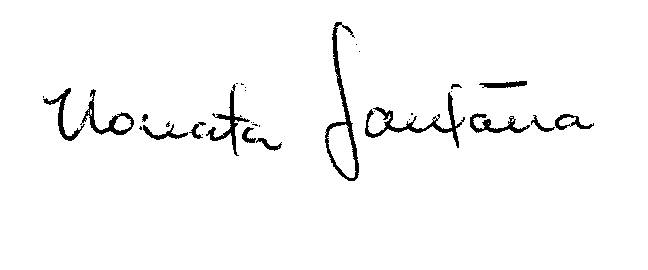 Nonata Santana